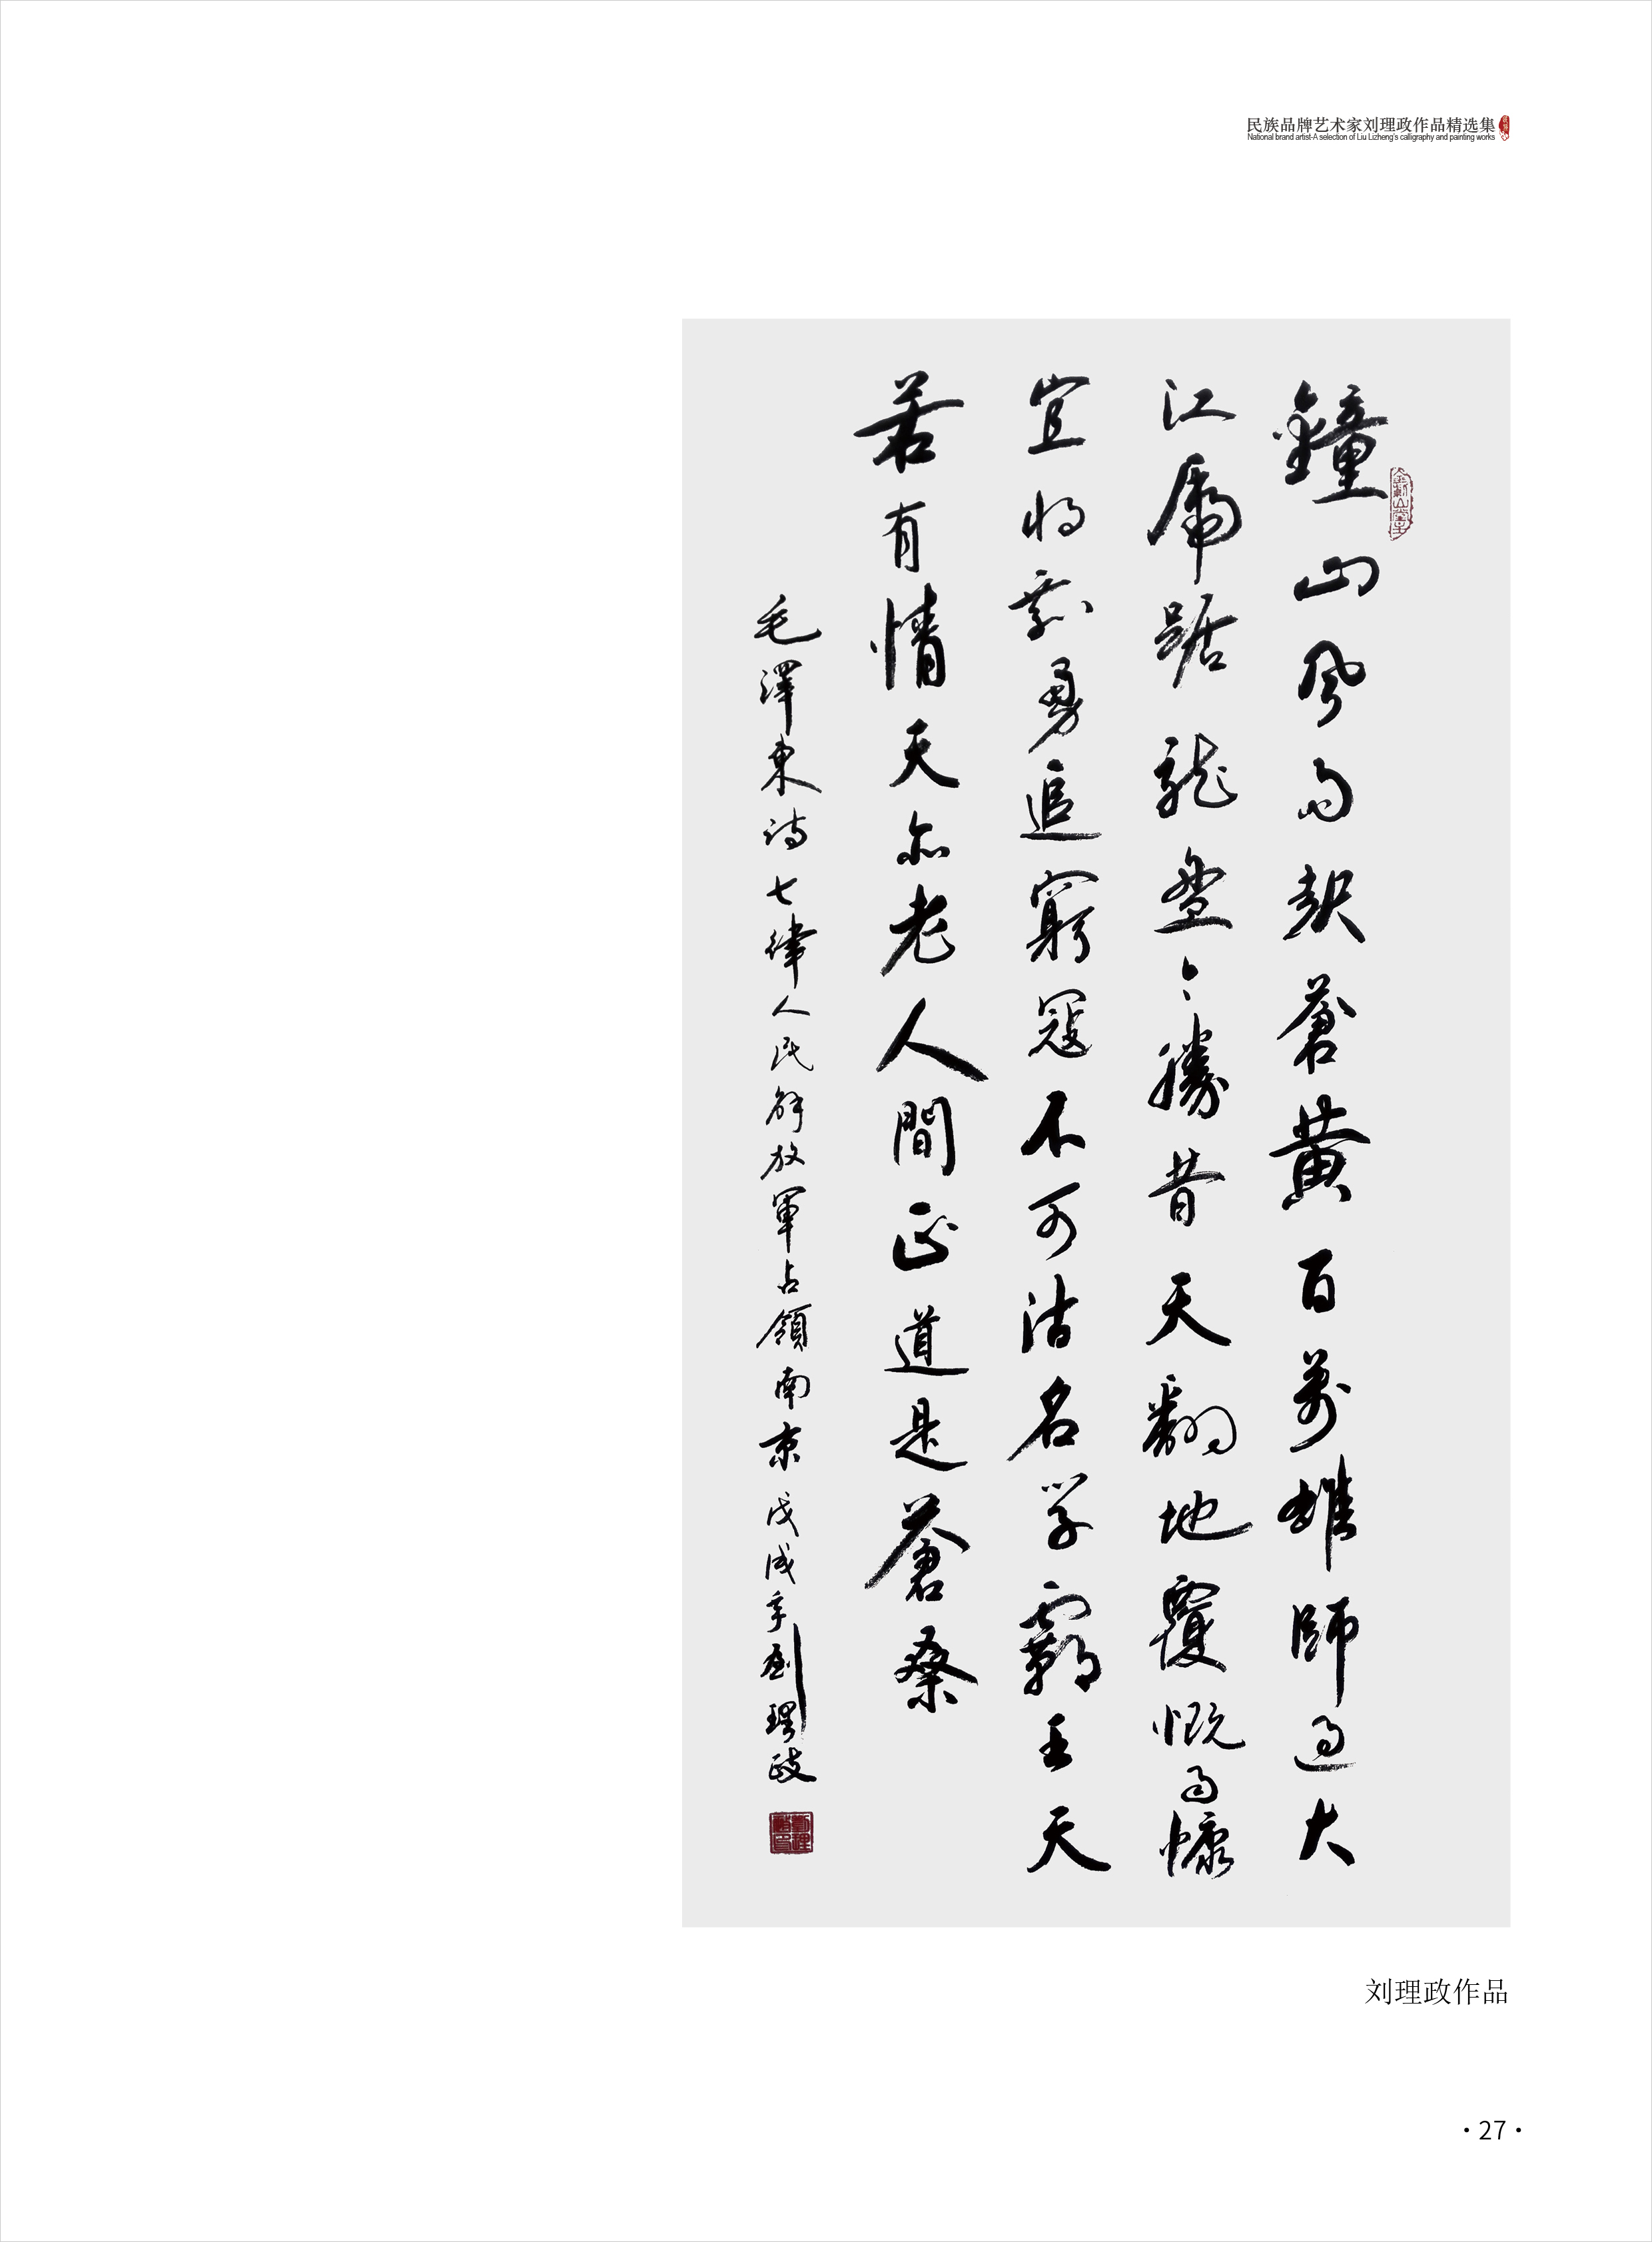 民族品牌艺术家刘理政作品精选集
National brand artist-A selection of Liu Lizheng's calligraphy and painting works
鐘山风雨起蒼黄百萬雄師過大
江虎踞龍盘今勝昔天翻地覆慨而慷
宜将剩勇追窮寇不可沽名学霸王天
若有情天亦老人間正道是蒼桑
毛澤東诗七律人民解放軍占領南京戊戌年劉理政
刘理政作品
·27·